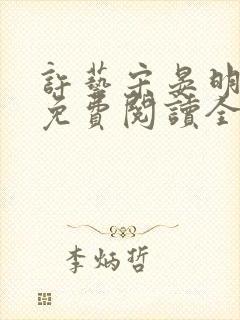 許藝宋晏明
免費閱讀全
李炳哲